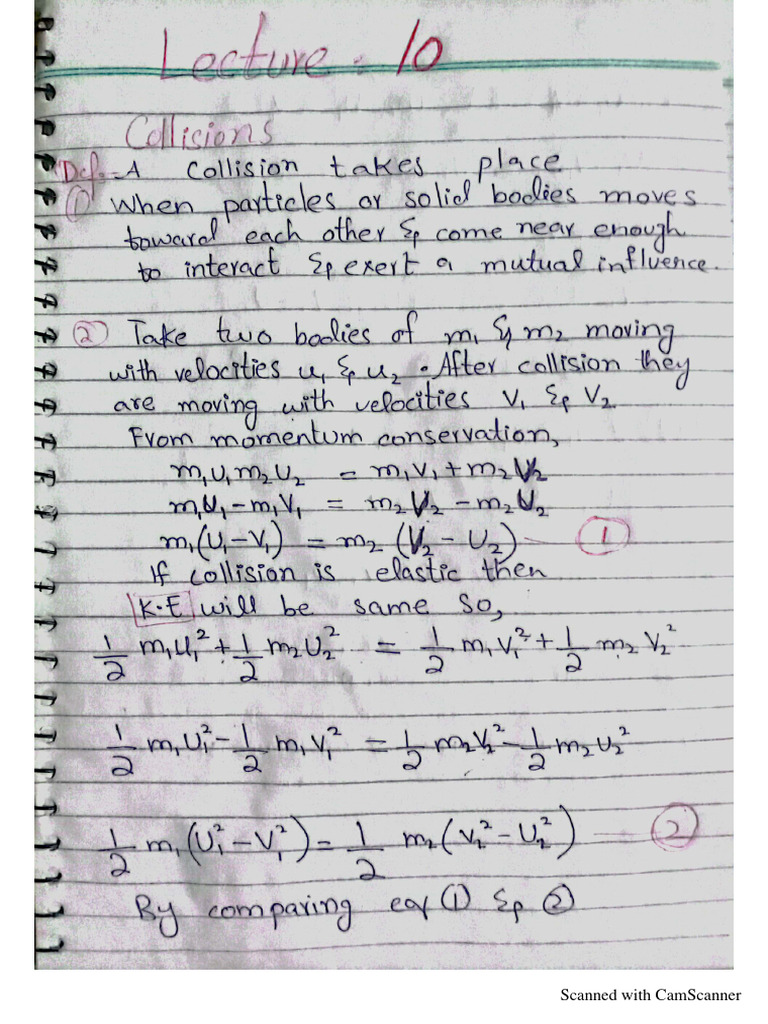 Lecture - 10
Collisions
Def. A collision takes place
① When particles or solid bodies moves
toward each other & come near enough
to interact & exert a mutual influence.
② Take two bodies of m₁ & m₂ moving
with velocities u₁ & u₂. After collision they
are moving with velocities V₁ & V₂
From momentum conservation,
m₁U₁m₂U₂ = m₁V₁+m₂V₂
m₁U₁-m₁V₁ = m₂V₂-m₂U₂
m₁(U₁-V₁) = m₂(V₂-U₂) ①
If collision is elastic then
K.E will be same so,
1/2 m₁U₁²+1/2 m₂U₂² = 1/2 m₁V₁²+1/2 m₂V₂²
1/2 m₁U₁²-1/2 m₁V₁² = 1/2 m₂V₂²-1/2 m₂U₂²
1/2 m₁(U₁²-V₁²) = 1/2 m₂(V₂²-U₂²) ②
By comparing eq ① & ②
Scanned with CamScanner